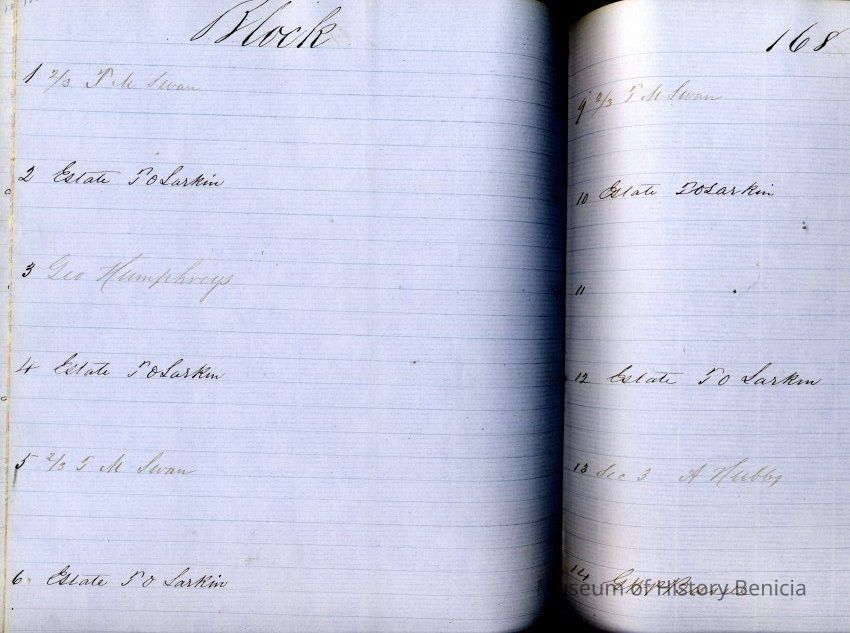 Block
1 2/3 T M Swan
2 Estate T O Larkin
3 Geo Humphreys
4 Estate T O Larkin
5 2/3 T M Swan
6 Estate T O Larkin
168
9 2/3 T M Swan
10 Estate T O Larkin
11
12 Estate T O Larkin
13 Sec 3 A Hubbs
14
Museum of History Benicia